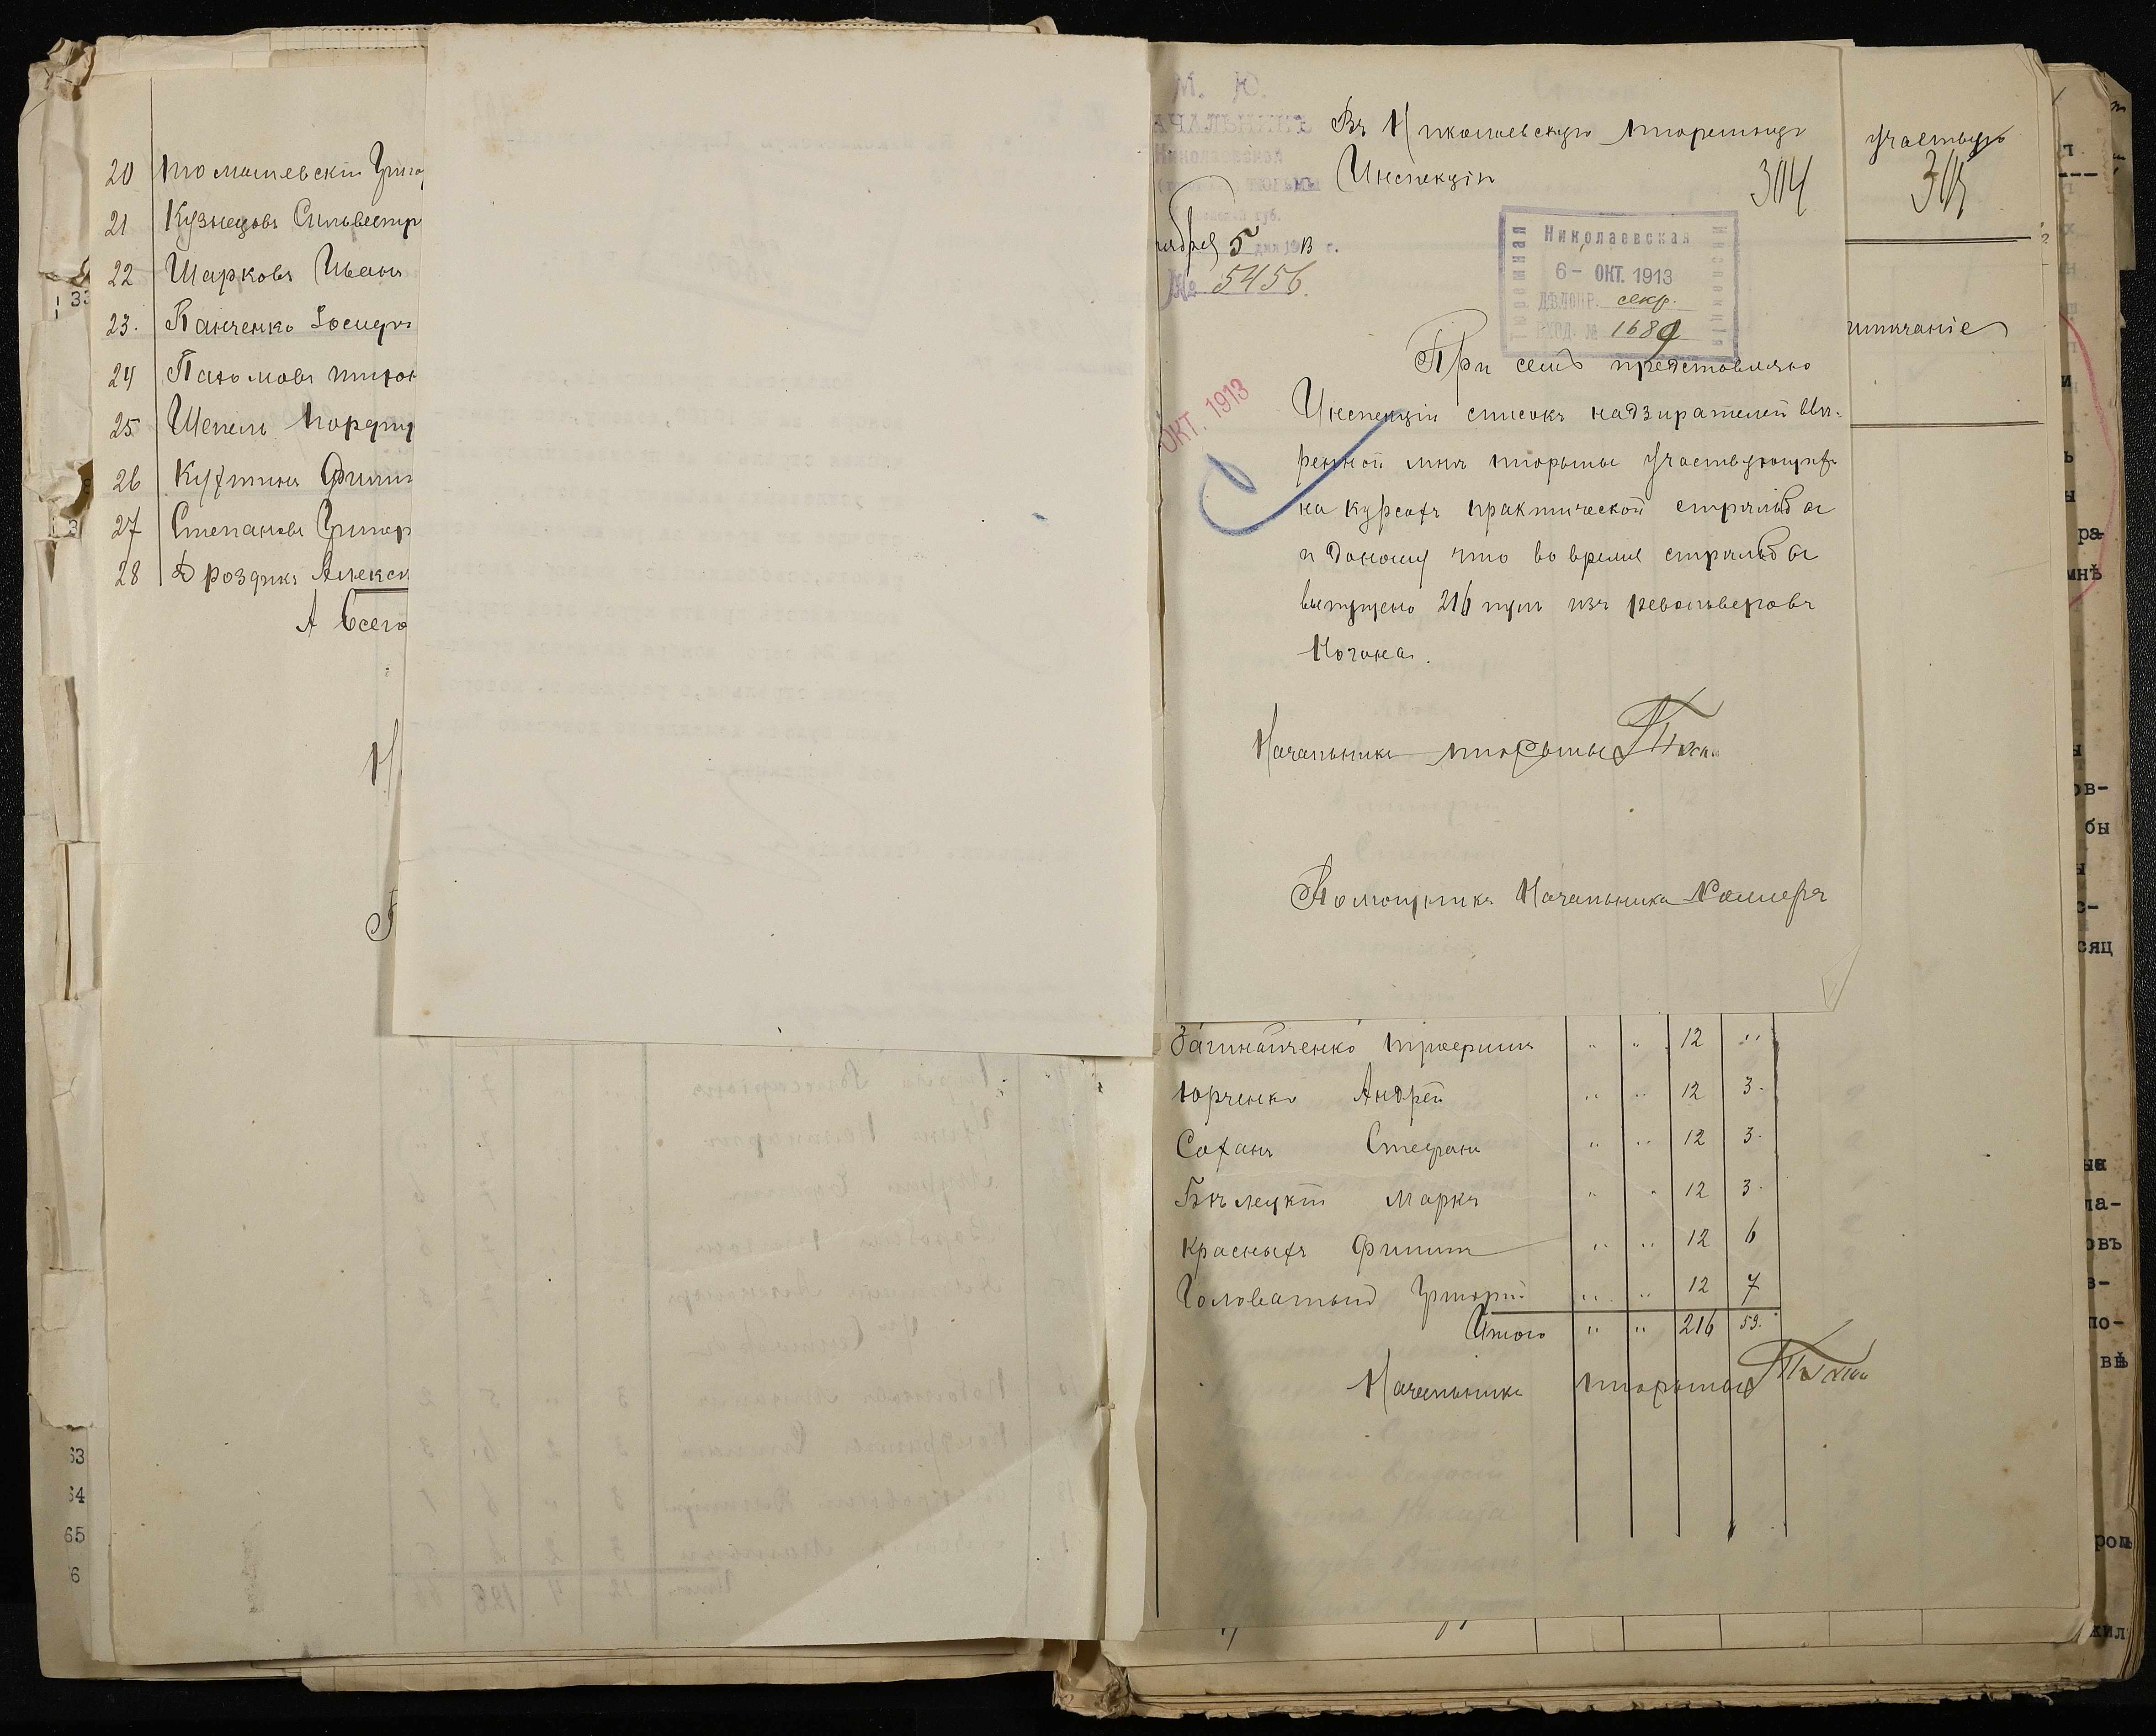 20 Томашевскій
21 Кузнецовъ Сильвестр
22 Шарковъ Иванъ
23. Панченко Іосифъ
24 Пахомовъ Тихон
25 Шепель Порфир
26 Кухтинъ Филип
27 Степановъ Григор
28 Дроздикъ Алекса
А Всего
М. Ю.
Николаевской
5 дня 1913 г.
№ 5456.
Въ Николаевскую тюремную
Инспекцію
304
Николаевская
Тюремная
Инспекція
6- ОКТ. 1913
ДѢЛОПР. секр.
ВХОД. № 1689
ОКТ. 1913
При семъ представляю
Инспекціи списокъ надзирателей Ввѣ-
ренной мнѣ тюрьмы участвующихъ
на курсахъ практической стрѣльбы
и доношу что во время стрѣльбы
выпущено 216 пуль изъ револьверовъ
Нагана.
Начальникъ тюрьмы
Помощникъ Начальника
участвую
305
имѣчаніе
Загинайченко Трофимъ " " 12 "
Юрченко Андрей " " 12 3.
Соханъ Стефанъ " " 12 3.
Бѣлецкій Маркъ " " 12 3.
Красныхъ Филипъ " " 12 6
Головатый Григорій " " 12 7
Итого " " 216 53.
Начальникъ тюрьмы
ра-
мнѣ
ов-
бы
с-
сяц
ла-
овъ
в-
по-
вѣ
ромъ
жил
63
64
65
6